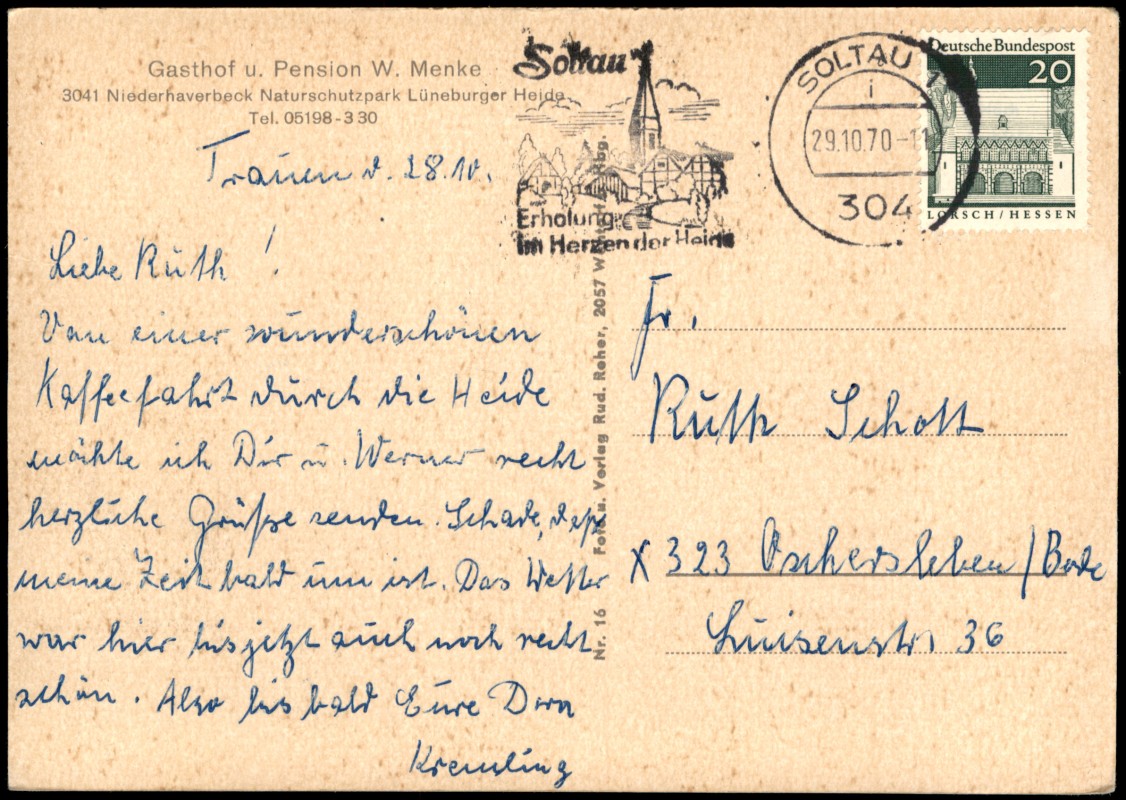 Gasthof u. Pension W. Menke
3041 Niederhaverbeck Naturschutzpark Lüneburger Heide
Tel. 05198-330
Soltau
Erholung
im Herzen der Heide
SOLTAU 1
i
29.10.70-11
304
Deutsche Bundespost
20
LORSCH/HESSEN
Trauen d. 28.10.
Liebe Ruth!
Von einer wunderschönen
Kaffeefahrt durch die Heide
möchte ich Dir u. Werner recht
herzliche Grüße senden. Schade, daß
meine Zeit bald um ist. Das Wetter
war hier bis jetzt auch noch recht
schön. Also bis bald Eure Dora
Kremling
Nr. 16 Foto u. Verlag Rud. Reher, 2057 Hbg.
Fr.
Ruth Schott
X 323 Oschersleben/Bode
Luisenstr. 36